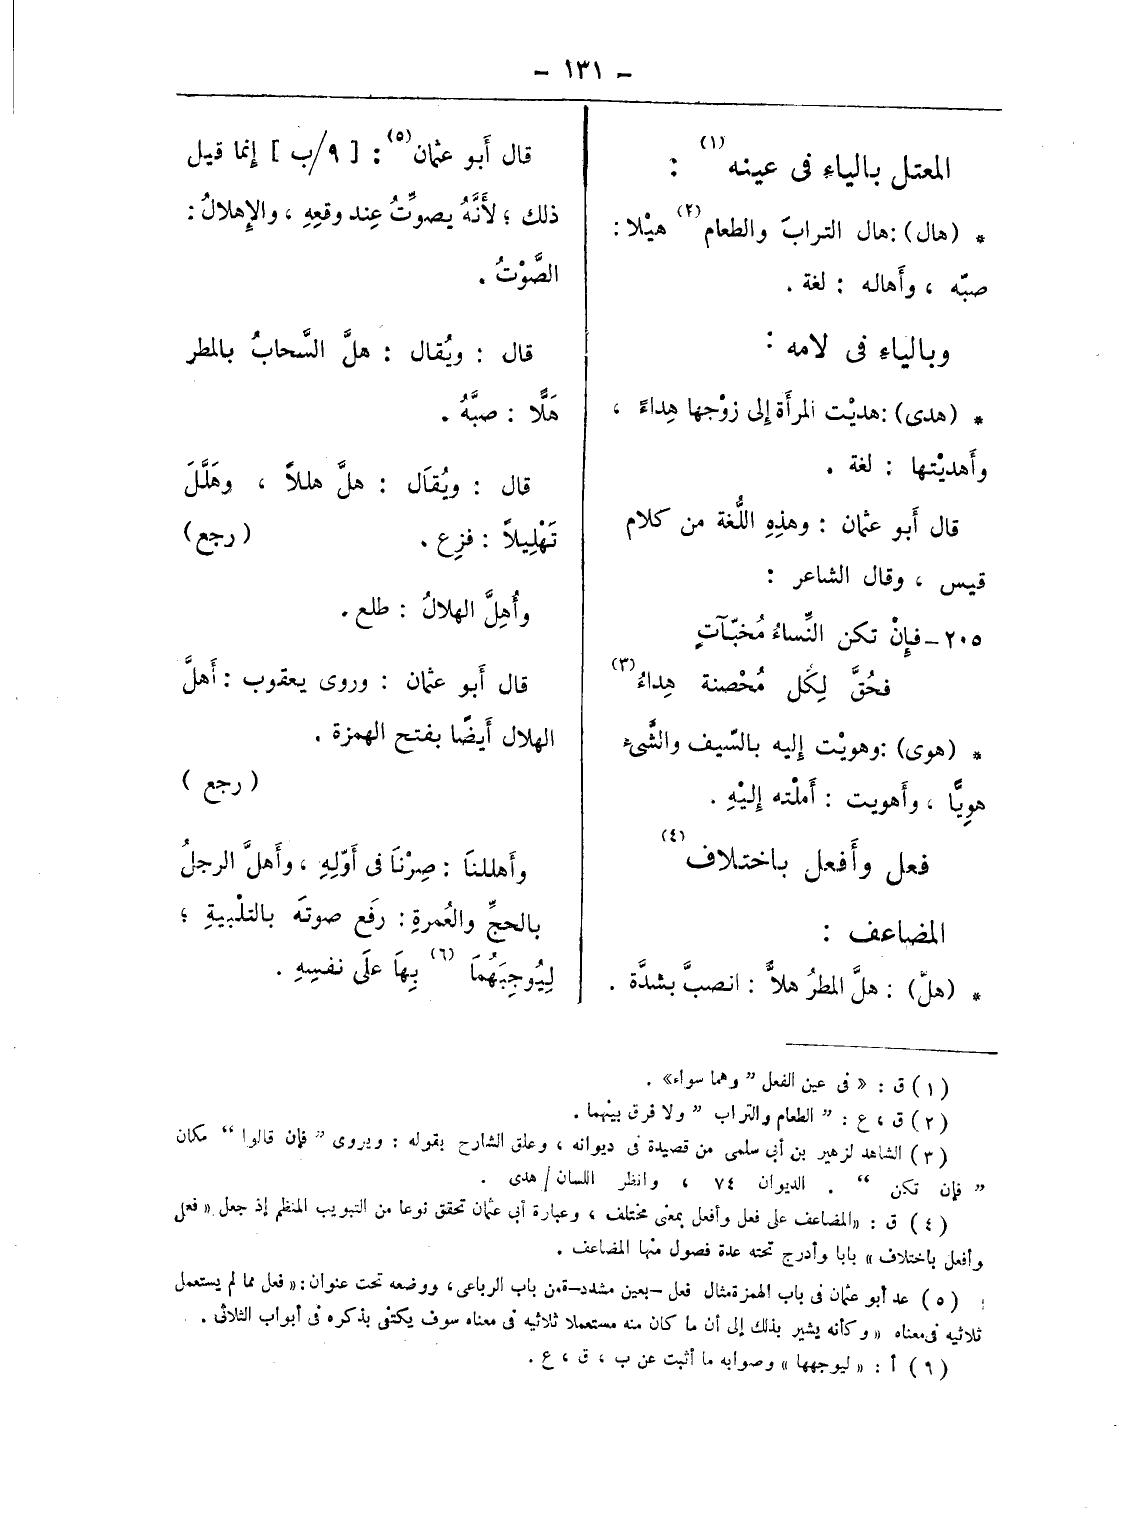 – ١٣١ –
المعتل بالياء فى عينه (١) :
* (هال) :هال الترابَ والطعام (٢) هيْلا :
صبّه ، وأَهاله : لغة .
وبالياء فى لامه :
* (هدى) :هديْت المرأَة إلى زوْجها هِداءً ،
وأَهديْتها : لغة .
قال أَبو عثمان : وهذِهِ اللُّغة من كلام
قيس ، وقال الشاعر :
٢٠٥ – فإِنْ تكن النِّساءُ مُخبّآتٍ
فحُقَّ لِكَل مُحْصنة هِداءُ (٣)
* (هوى) :وهويْت إليه بالسّيف والشَّىءِ
هوِيًّا ، وأَهويت : أَملْته إليْهِ .
فعل وأَفعل باختلاف (٤)
المضاعف :
* (هلّ) : هلَّ المطرُ هلاًّ : انصبَّ بشدَّة .
قال أَبو عثمان (٥) : [ ٩/ب ] إِنما قيل
ذلك ؛ لأَنَّهُ يصوِّتُ عِند وقعِهِ ، والإِهلالُ :
الصَّوْتُ .
قال : ويُقال : هلَّ السَّحابُ بالمطر
هَلًّا : صبَّهُ .
قال : ويُقاَل : هلَّ هللاً ، وهَلَّلَ
تَهْلِيلاً : فزِع . ( رجع )
وأُهِلَّ الهلالُ : طلع .
قال أَبو عثمان : وروى يعقوب : أَهلَّ
الهلال أَيضًا بفتح الهمزة .
( رجع )
وأَهللنَا : صِرْنَا فى أَوّلِهِ ، وأَهلَّ الرجلُ
بالحجِّ والعُمرةِ : رفَع صوتَه بالتلْبيةِ ؛
لِيُوجِبَهُمَا (٦) بِهَا علَى نفسِهِ .
(١) ق : « فى عين الفعل " وهما سواء» .
(٢) ق ، ع : " الطعام والتراب " ولا فرق بينهما .
(٣) الشاهد لزهير بن أبى سلمى من قصيدة فى ديوانه ، وعلق الشارح بقوله : ويروى " فإن قالوا " مكان
" فإن تكن " . الديوان ٧٤ ، وانظر اللسان / هدى .
(٤) ق : «المضاعف على فعل وأفعل بمعنى مختلف ، وعبارة أبى عثمان تحقق نوعا من التبويب المنظم إذ جعل « فعل
وأفعل باختلاف » بابا وأدرج تحته عدة فصول منها المضاعف .
(٥) عد أبو عثمان فى باب الهمزة مثال فعل – بعين مشددة – من باب الرباعى ، ووضعه تحت عنوان : « فعل مما لم يستعمل
ثلاثيه فى معناه » وكأنه يشير بذلك إلى أن ما كان منه مستعملا ثلاثيه فى معناه سوف يكتفى بذكره فى أبواب الثلاثى .
(٩) أ : « ليوجهها » وصوابه ما أثبت عن ب ، ق ، ع .